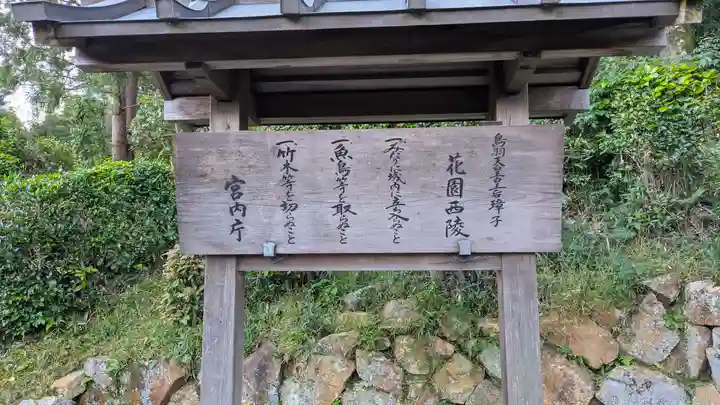 鳥羽天皇皇后璋子
花園西陵
一、みだりに域内に立ち入らぬこと
一、魚鳥等を取らぬこと
一、竹木等を切らぬこと
宮内庁